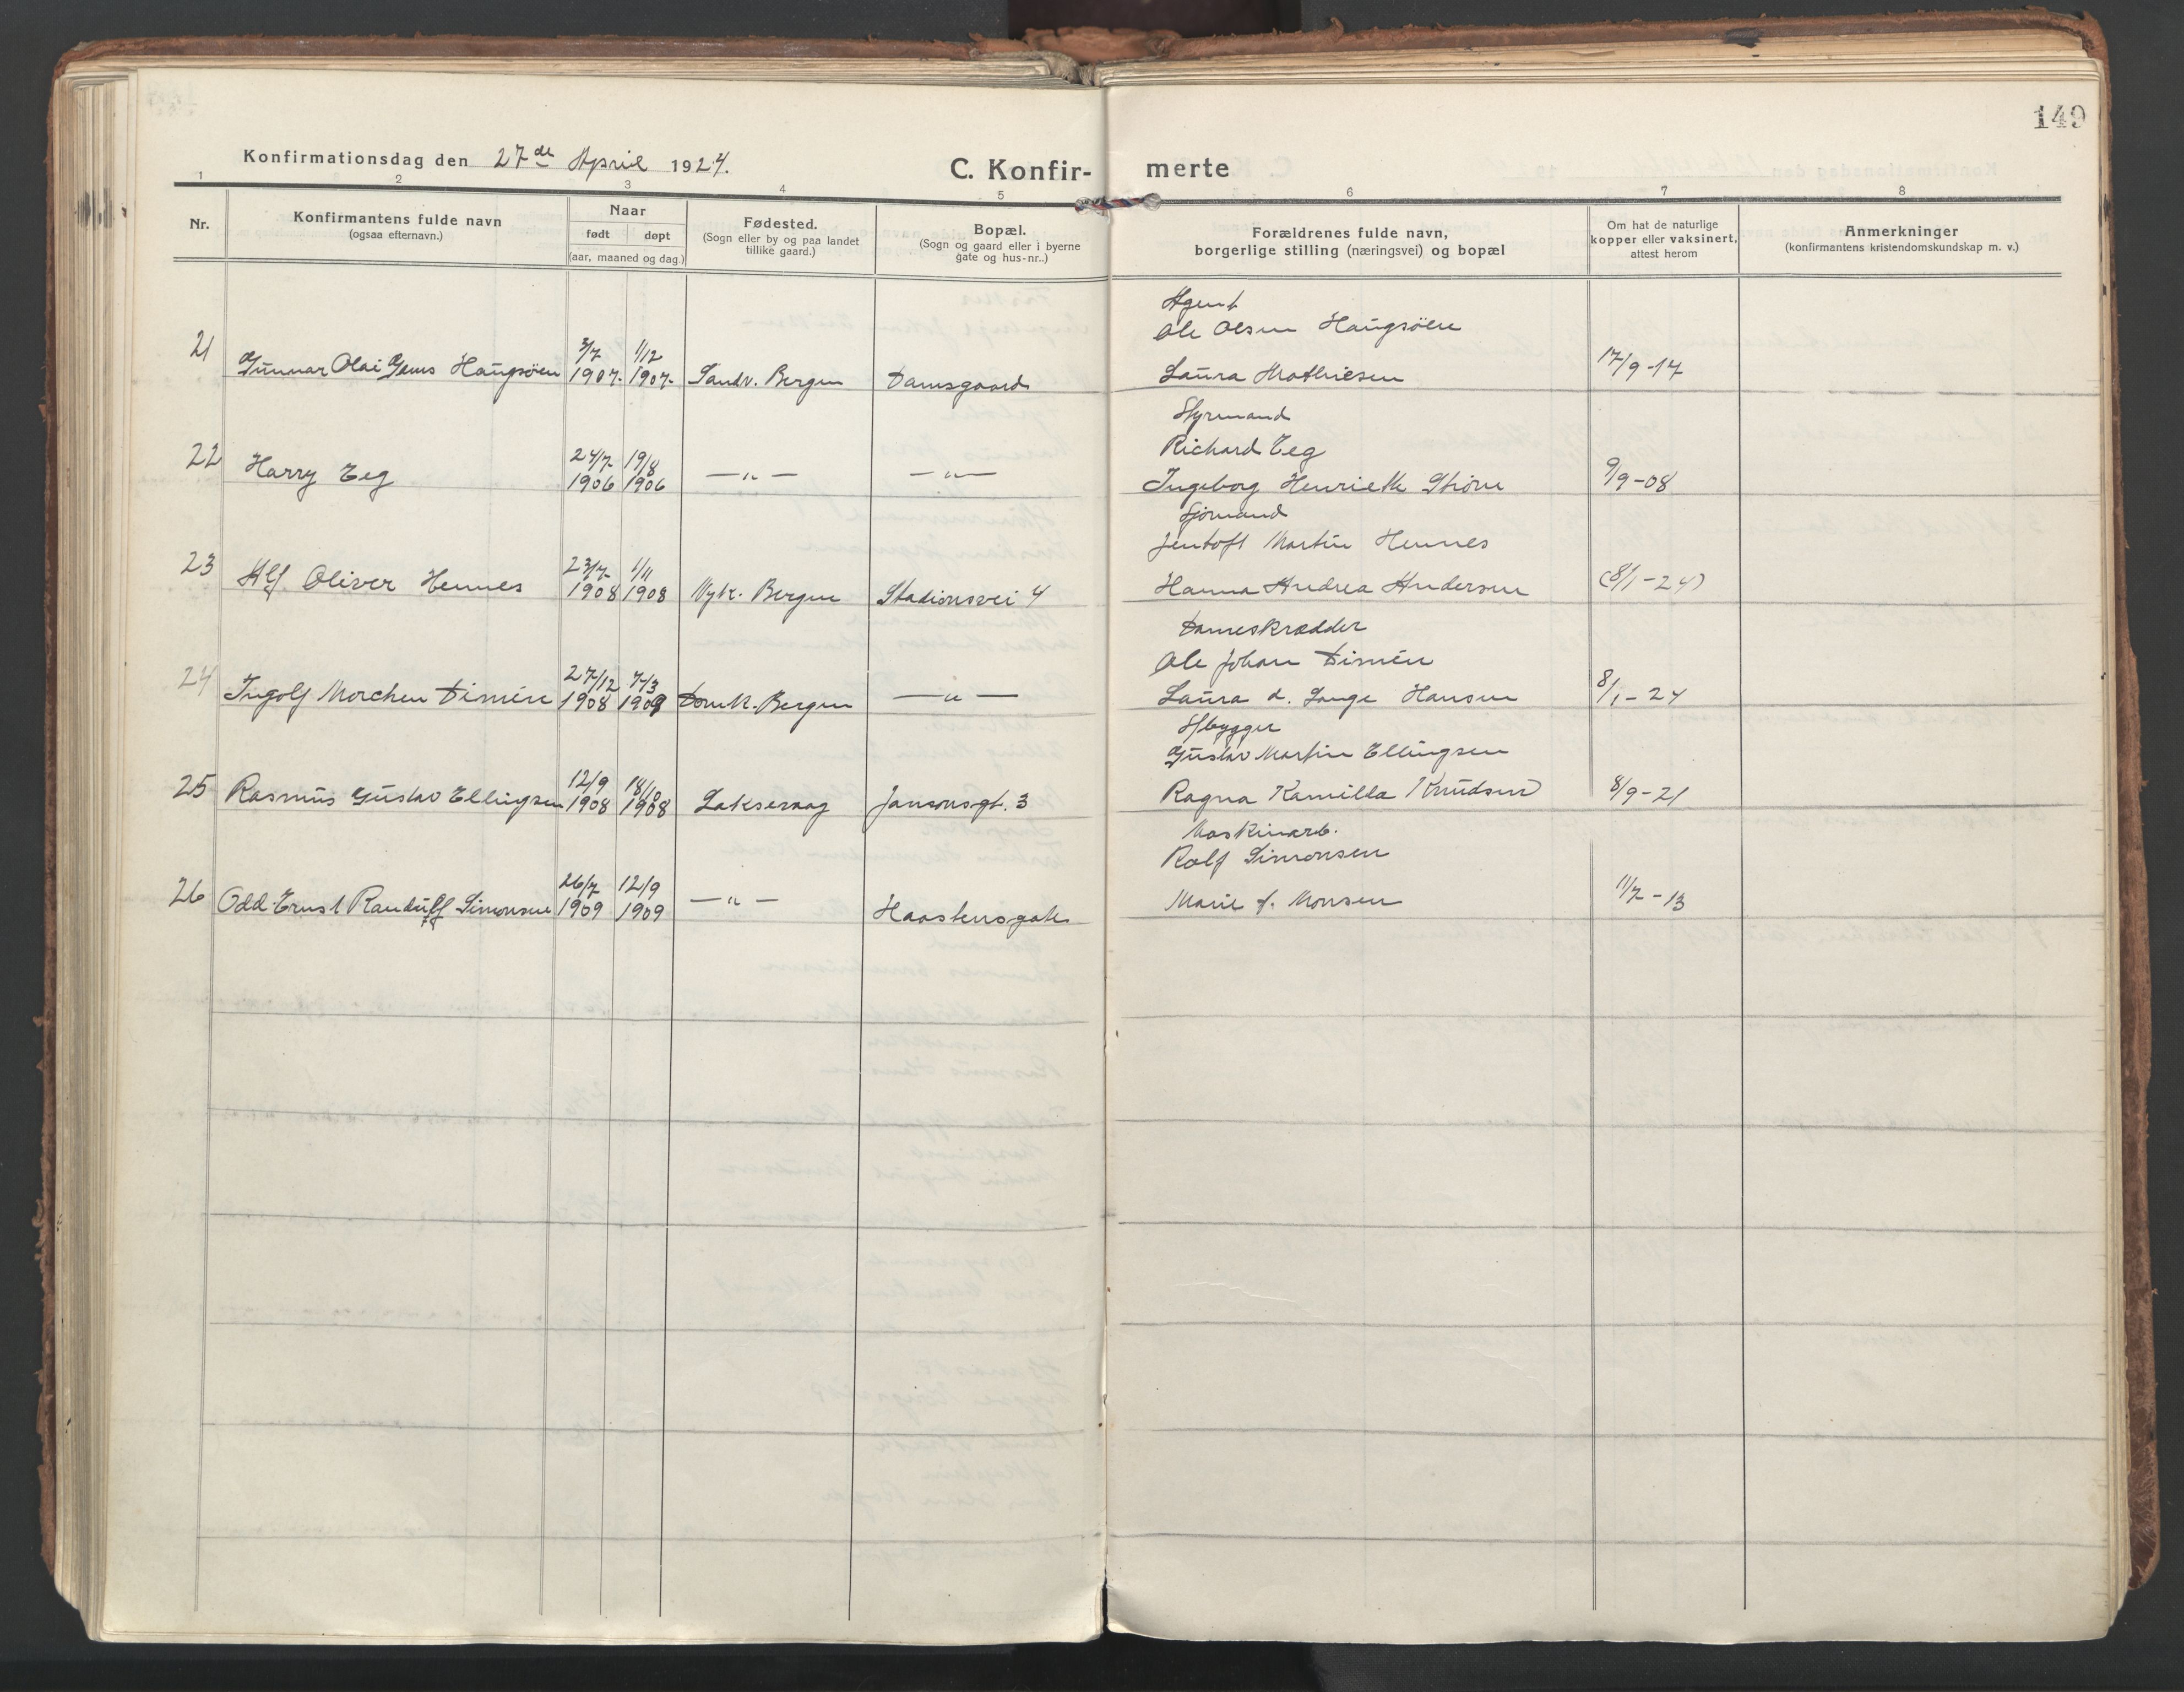 149
Konfirmationsdag den 27de April 1924.
C. Konfirmerte
1 2 3 4 5 6 7 8
Nr.
Konfirmantens fulde navn
(ogsaa efternavn.)
Naar
født døpt
(aar, maaned og dag.)
Fødested.
(Sogn eller by og paa landet
tillike gaard.)
Bopæl.
(Sogn og gaard eller i byerne
gate og hus-nr..)
Forældrenes fulde navn,
borgerlige stilling (næringsvei) og bopæl
Om hat de naturlige
kopper eller vaksinert,
attest herom
Anmerkninger
(konfirmantens kristendomskundskap m. v.)
Agent
Ole Olsen Haugsöen
21 Gunnar Olai Jens Haugsöen 3/7 1907. 1/12 1907. Sandv. Bergen Damsgaard Laura Mathiesen 17/9-14
Styrmand
Richard Eeg
22 Harry Eeg 24/7 1906 19/8 1906 —"— —"— Ingeborg Henriette 9/9-08
Sjömand
Jentoft Martin Hennes
23 Alf Oliver Hennes 23/7 1908 1/11 1908 Nyk. Bergen Stadionsvei 4 Hanna Andrea Andersen (8/1-24)
Dameskrædder
Ole Johan Dimén
24 Ingolf Morchen Dimén 27/12 1908 7/3 1909 Domk. Bergen —"— Laura d. Lange Hansen 8/1-24
Gustav Martin Ellingsen
25 Rasmus Gustav Ellingsen 12/9 1908 18/10 1908 Laksevaag Jansonsgt. 3 Ragna Kamilla Knudsen 8/9-21
Maskinarb.
Rolf Simonsen
26 Odd Ernst Randulff Simonsen 26/7 1909 12/9 1909 —"— Haastensgate Marie f. Monsen 11/7-13